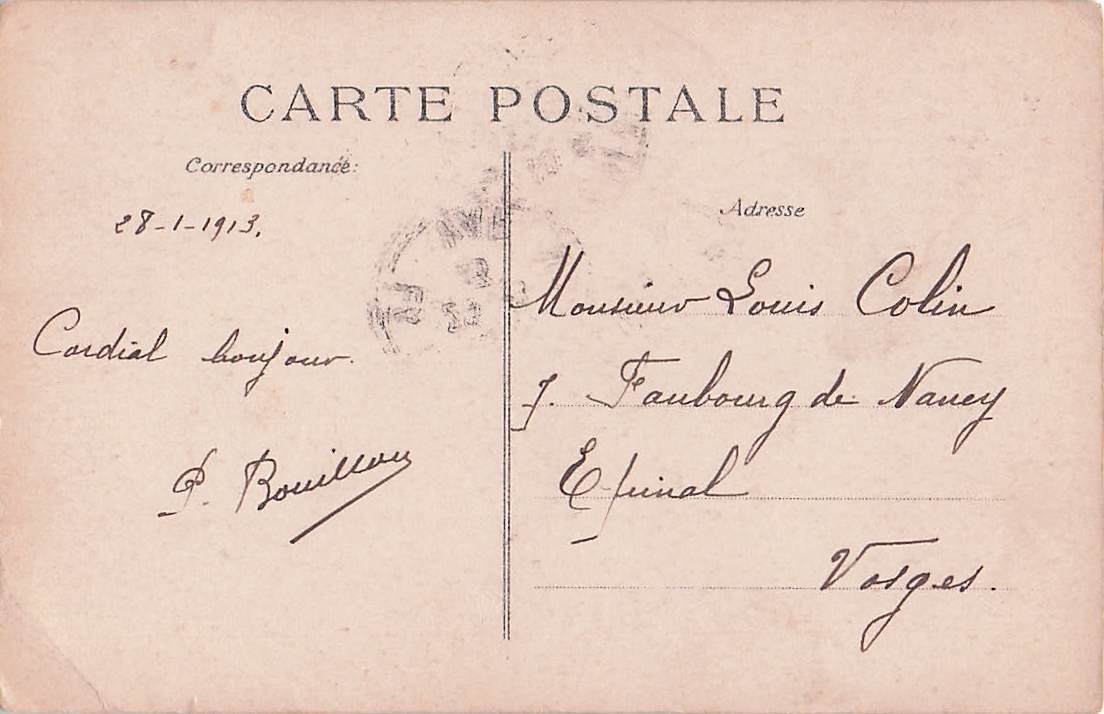 CARTE POSTALE
Correspondance:
28-1-1913.
Cordial bonjour.
P. Bouillon
Adresse
Monsieur Louis Colin
7. Faubourg de Nancy
Epinal
Vosges.